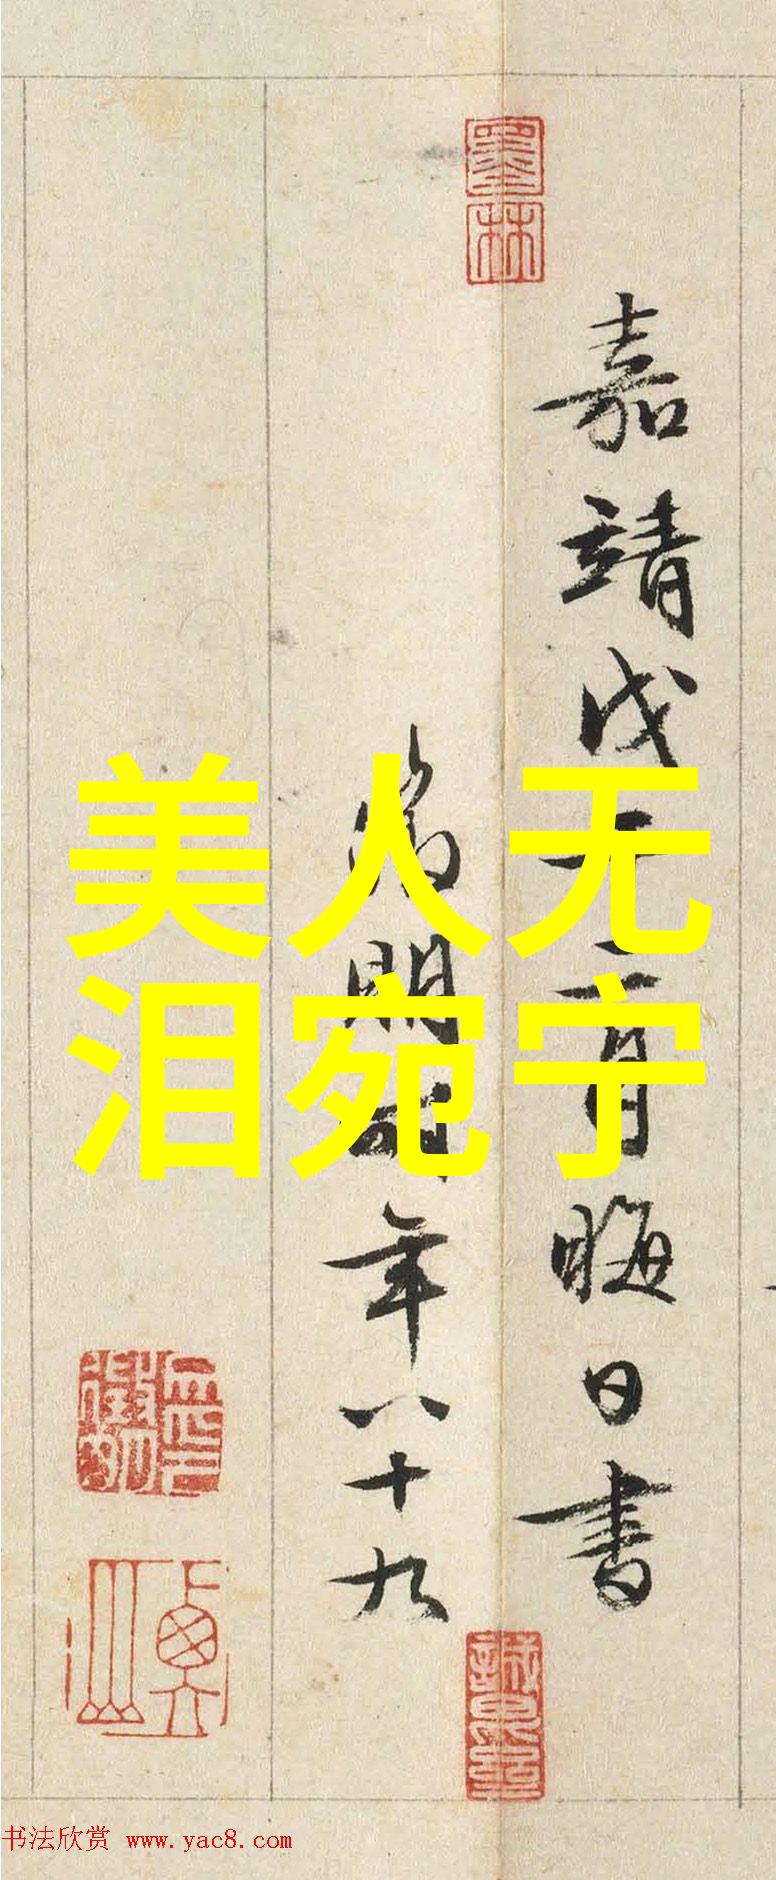 美人无
泪宛宁
墨林
嘉靖戊午二月晦日書
徵明時年八十九
衡山
书法欣赏 www.yac8.com